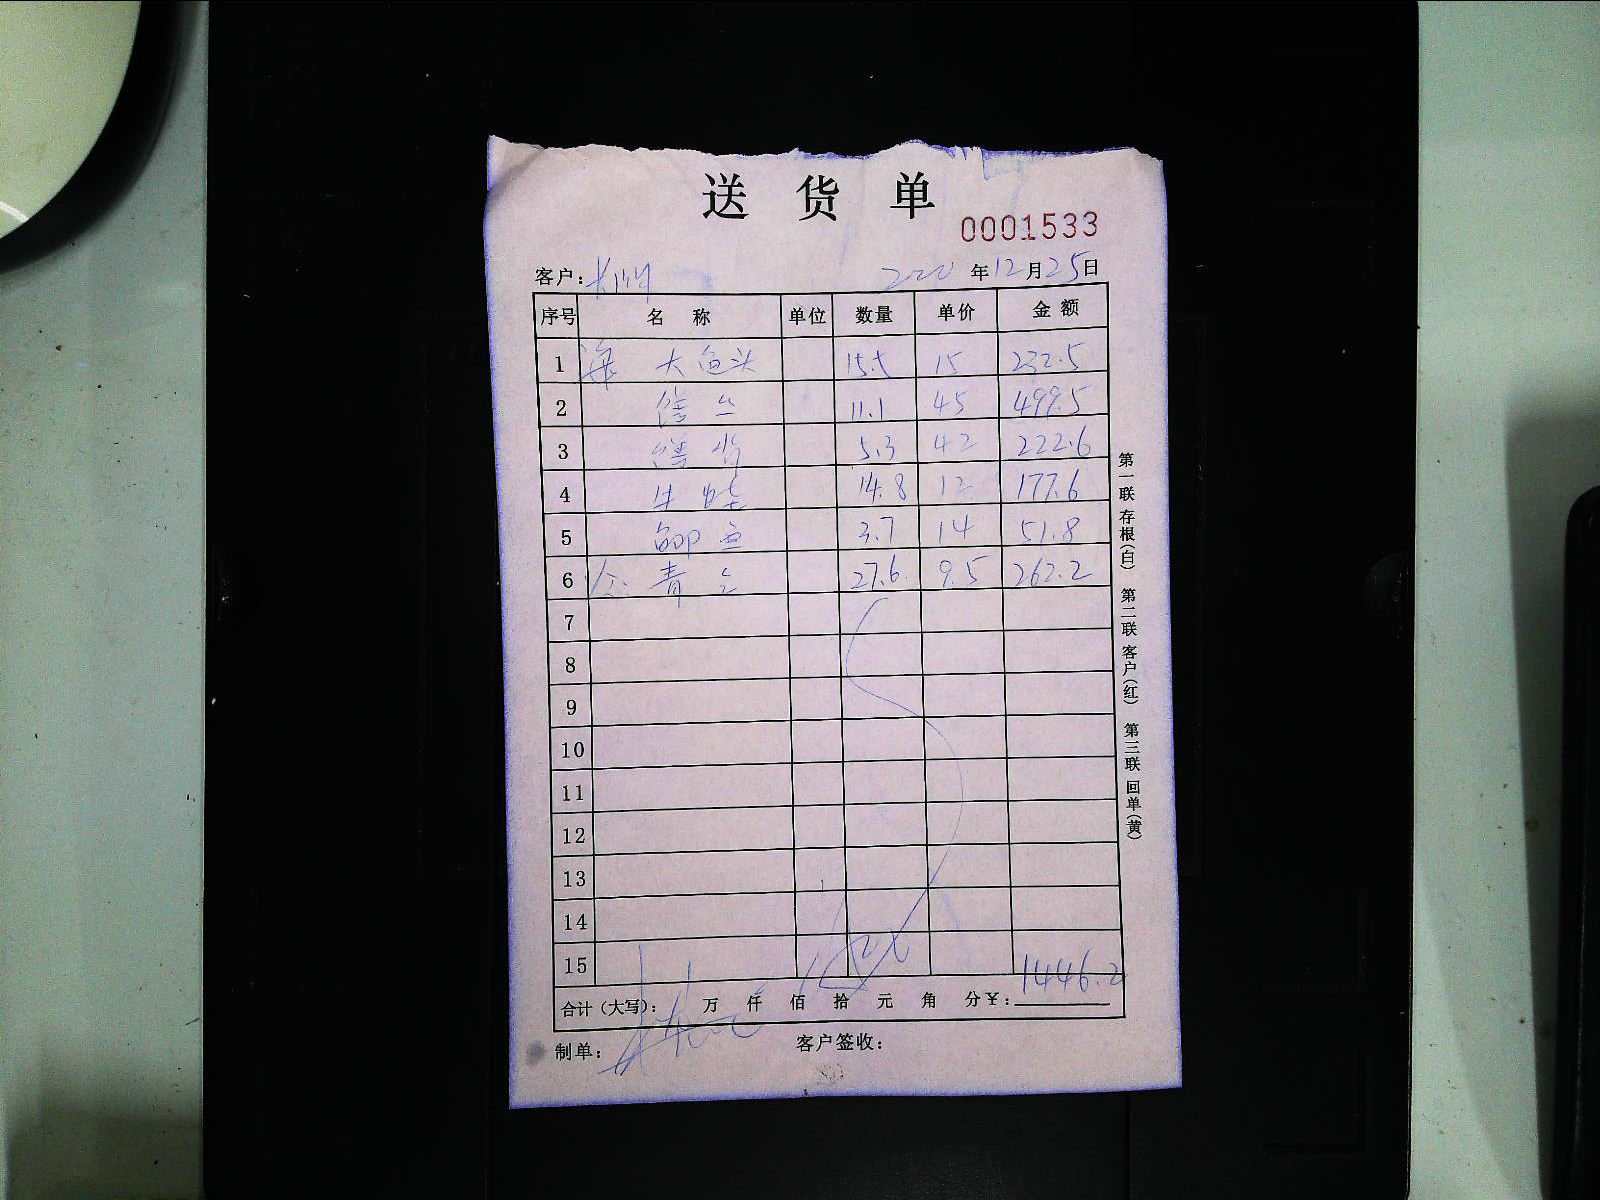 送货单
0001533
客户: 2020年12月25日
序号 名称 单位 数量 单价 金额
1 大鱼头 15.5 15 232.5
2 11.1 45 499.5
3 5.3 42 222.6
4 牛蛙 14.8 12 177.6
5 3.7 14 51.8
6 青 27.6 9.5 262.2
7
8
9
10
11
12
13
14
15
合计(大写): 万 仟 佰 拾 元 角 分¥: 1446.2
制单: 客户签收:
第一联存根(白) 第二联客户(红) 第三联回单(黄)